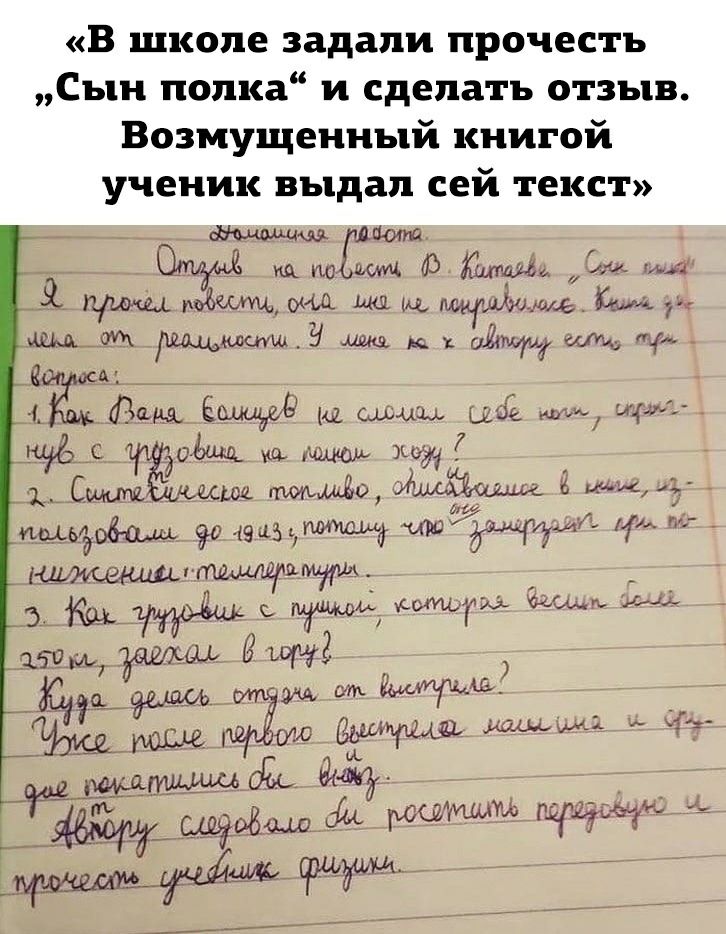 «В школе задали прочесть
„Сын полка“ и сделать отзыв.
Возмущенный книгой
ученик выдал сей текст»
Домашняя работа.
Отзыв на повесть В. Катаева „Сын полка"
Я прочёл повесть, она мне не понравилась. Книга да-
лека от реальности. У меня к автору есть три
вопроса:
1. Как Ваня Солнцев не сломал себе ноги, спрыг-
нув с грузовика на полном ходу?
2. Синтетическое топливо, описываемое в книге, из-
пользовали до 1943, потому что оно замерзает при по-
нижении температуры.
3. Как грузовик с пушкой, которая весит более
250 кг, заехал в гору?
Куда делась отдача от выстрела?
Уже после первого выстрела машина и ору-
дие покатились бы вниз.
Автору следовало бы посетить передовую и
прочесть учебник физики.